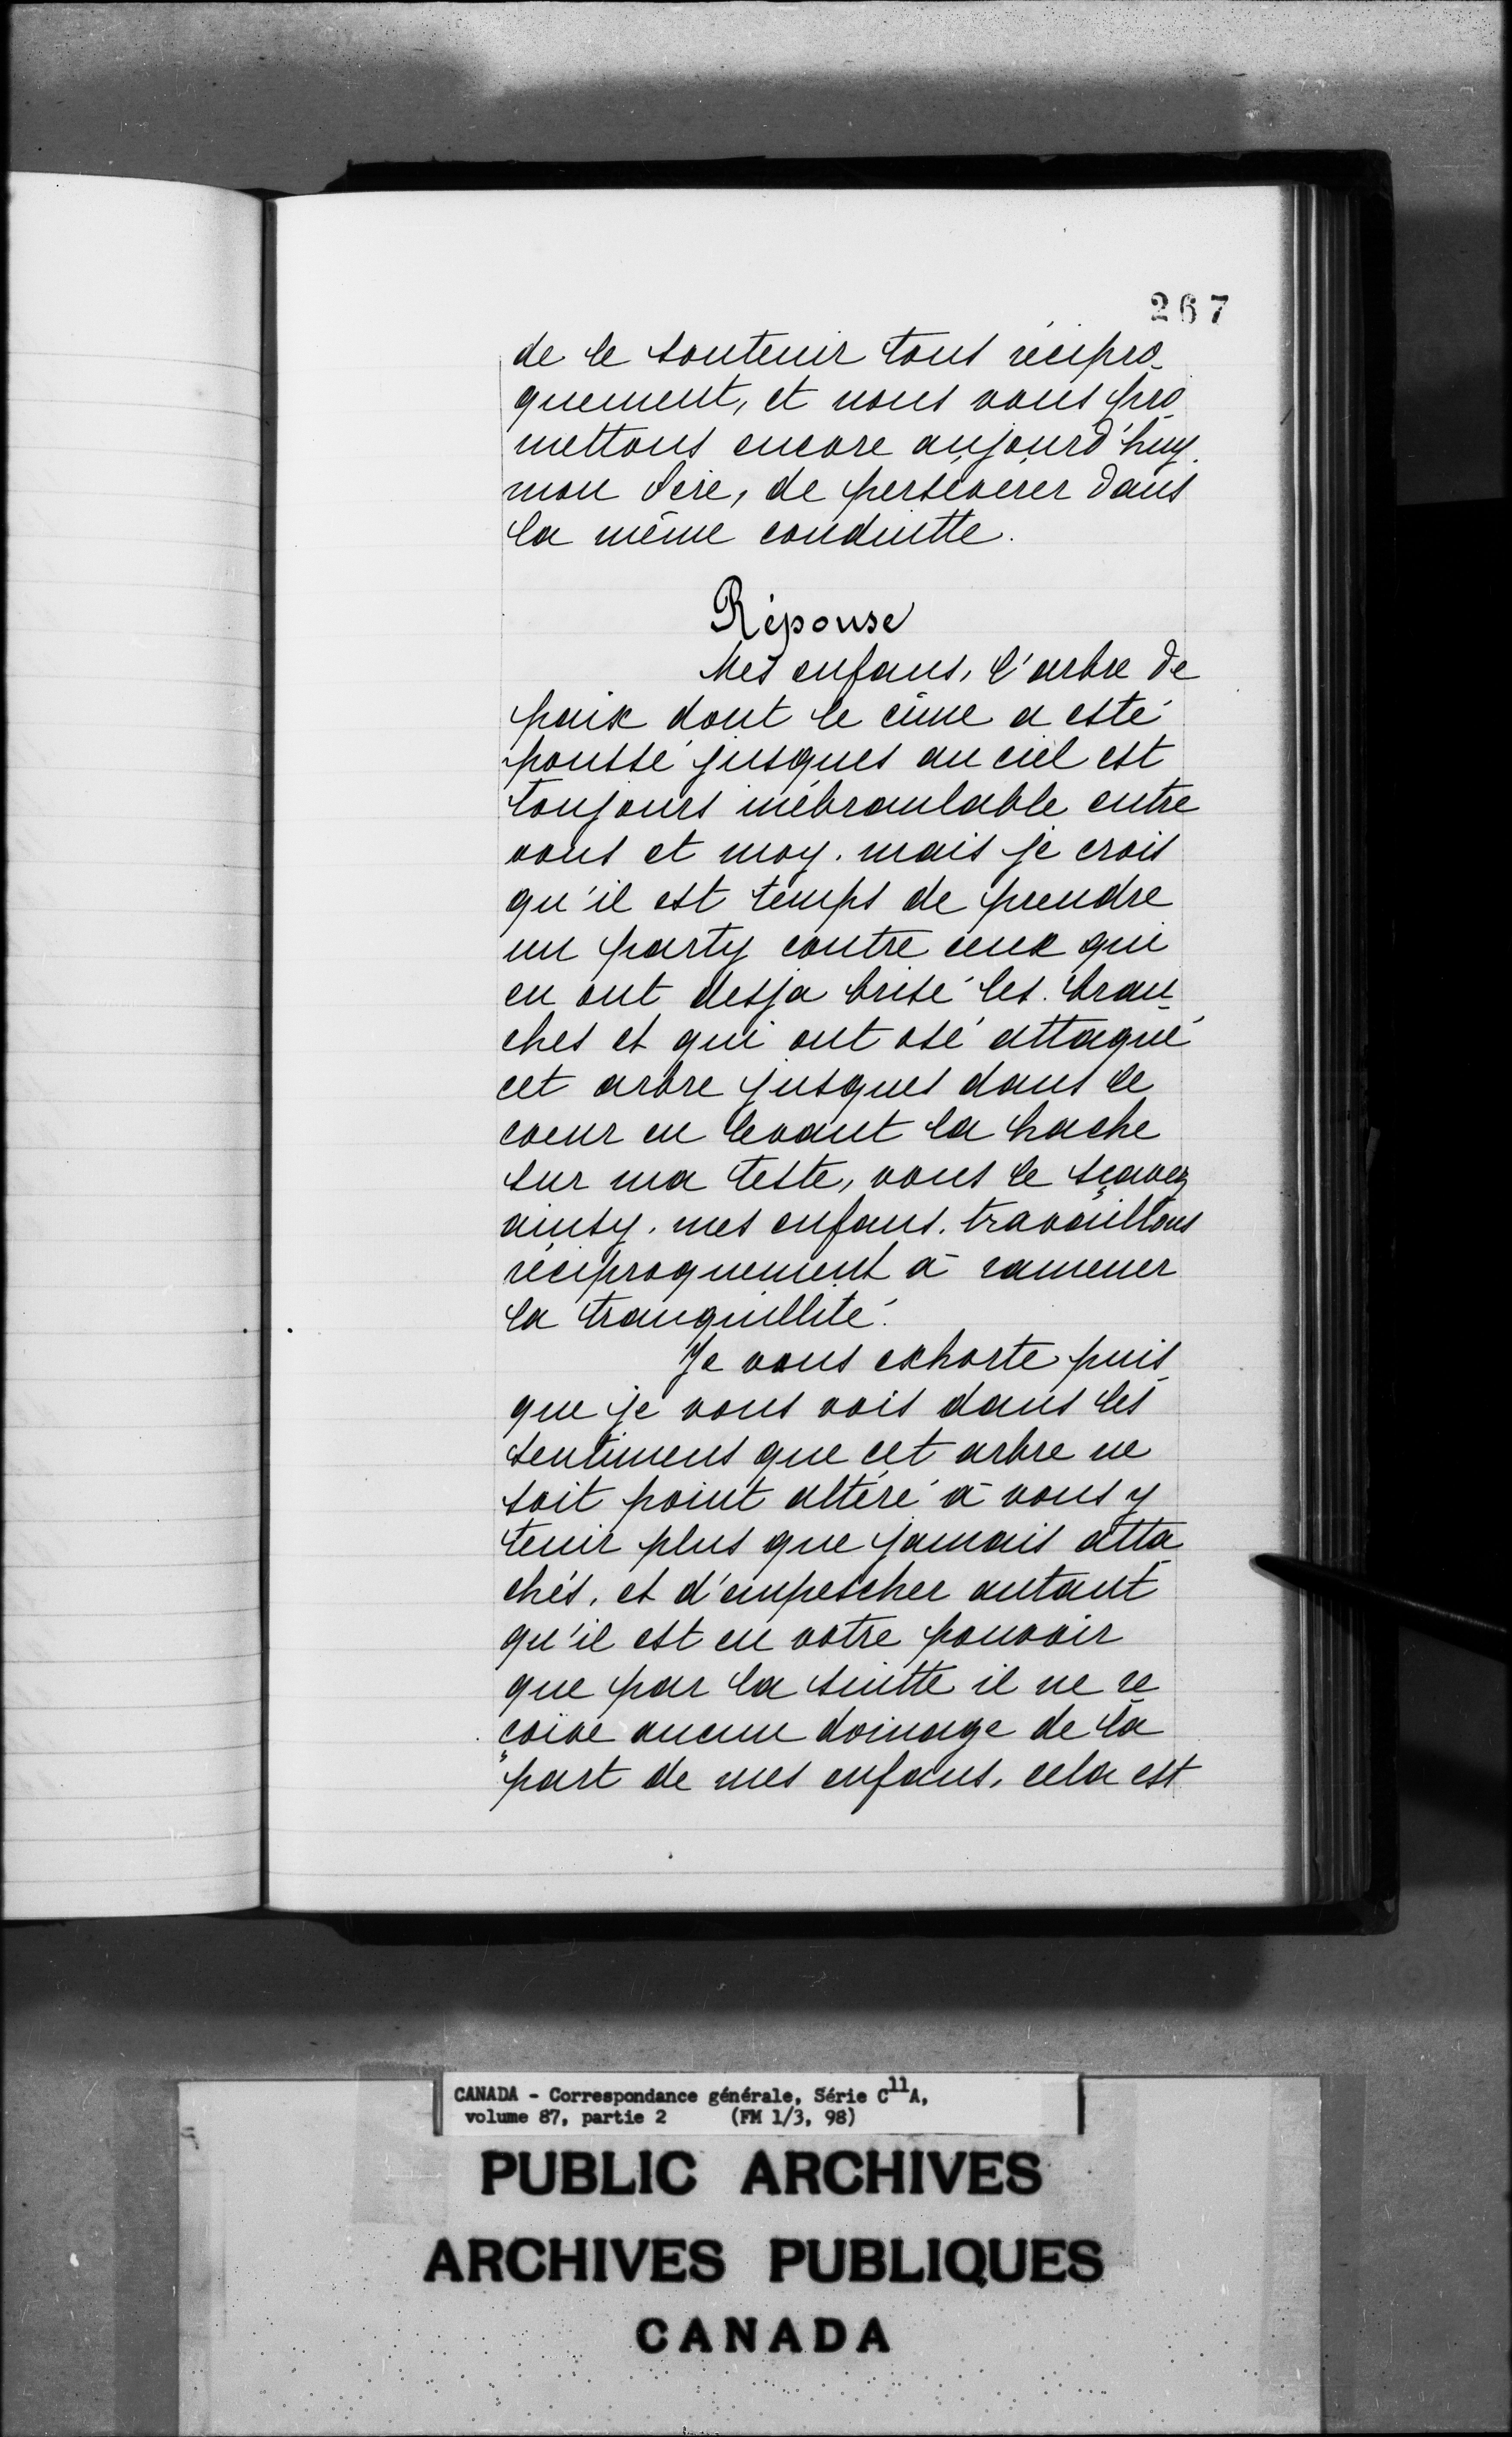 267
de le soutenir tous récipro-
quement, et nous vous pro-
mettons encore aujourd'huy.
mon Père, de persévérer dans
la même conduitte.
Réponse
Mes enfans, l'arbre de
paix dont le cime a esté
poussé jusques au ciel est
toujours inébranlable entre
vous et moy. mais je crois
qu'il est temps de prendre
un party contre ceux qui
en ont desja brisé les bran-
ches et qui ont osé attaqué
cet arbre jusques dans le
coeur en levant la hache
sur ma teste, vous le sçavez
ainsy. mes enfans. travaillons
réciproquement à ramener
la tranquillité.
Je vous exhorte puis-
que je vous vois dans les
sentimens que cet arbre ne
soit point altéré à vous y
tenir plus que jamais atta-
chés, et d'empescher autant
qu'il est en votre pouvoir
que par la suitte il ne re-
çoive aucun domage de la
part de mes enfans, cela est
CANADA - Correspondance générale, Série C11A,
volume 87, partie 2 (FM 1/3, 98)
PUBLIC ARCHIVES
ARCHIVES PUBLIQUES
CANADA